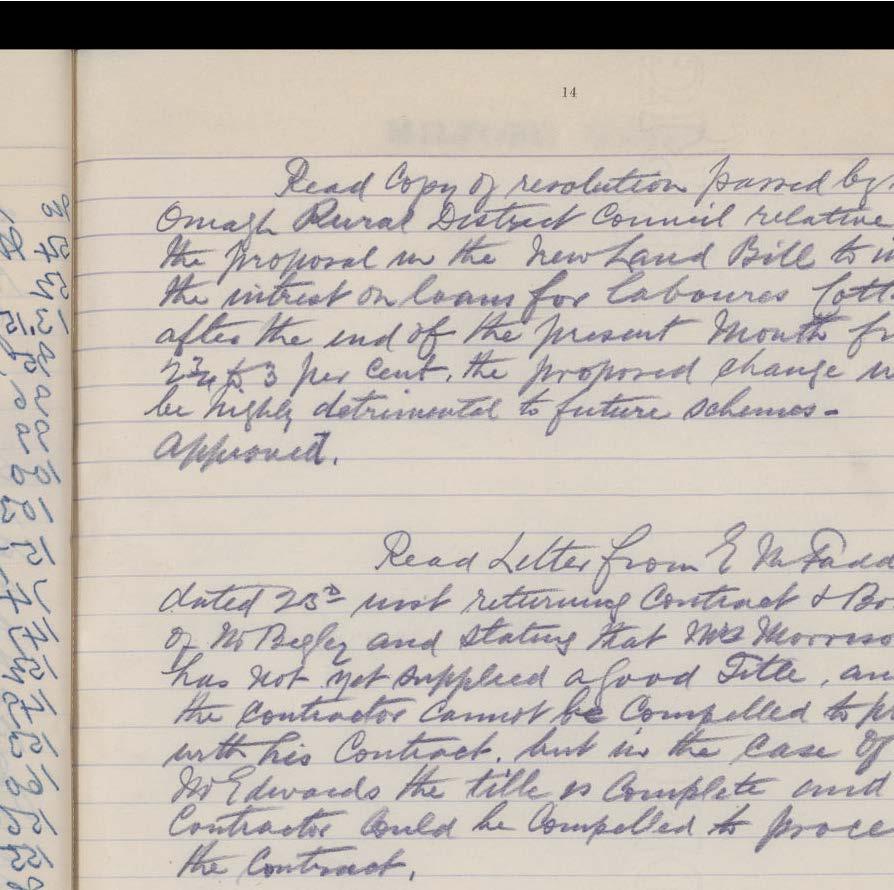 14
Read Copy of resolution passed by
Omagh Rural District Council relative
the proposal in the New Land Bill to
the intrest on loans for laboures Cott
after the end of the present Month fr
2¾ to 3 per cent. the proposed change
be highly detrimental to future schemes-
approved.
Read Letter from E McFadd
dated 23d inst returning Contract & Bo
of Mr Begley and stating that Mrs Morriso
has not yet supplied a good Title, an
the contractor cannot be Compelled to p
with his Contract. but in the case of
Mr Edwards the title is Complete and
Contractor Could be Compelled to proce
the Contract.